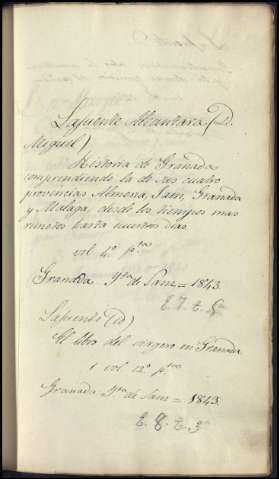 Lafuente Alcantara (D.
Miguel)
Historia de Granada
comprendiendo la de sus cuatro
provincias Almeria, Jaen, Granada
y Malaga, desde los tiempos mas
remotos hasta nuestros dias
vol 4º
Granada. Ymta de Sanz = 1843.
Lafuente (id)
El libro del viagero en Granada
1 vol 12º
Granada Ymta de Sanz = 1843.